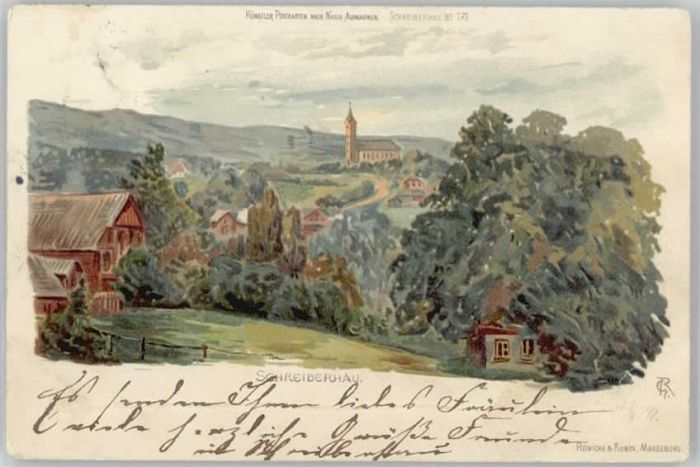 KÜNSTLER POSTKARTEN NACH NATUR-AUFNAHMEN. SCHREIBERHAU No 172
SCHREIBERHAU.
Es senden Ihnen liebes Fräulein
viele herzliche Grüße Freunde
in Schreiberhau
REINICKE & RUBIN, MAGDEBURG.